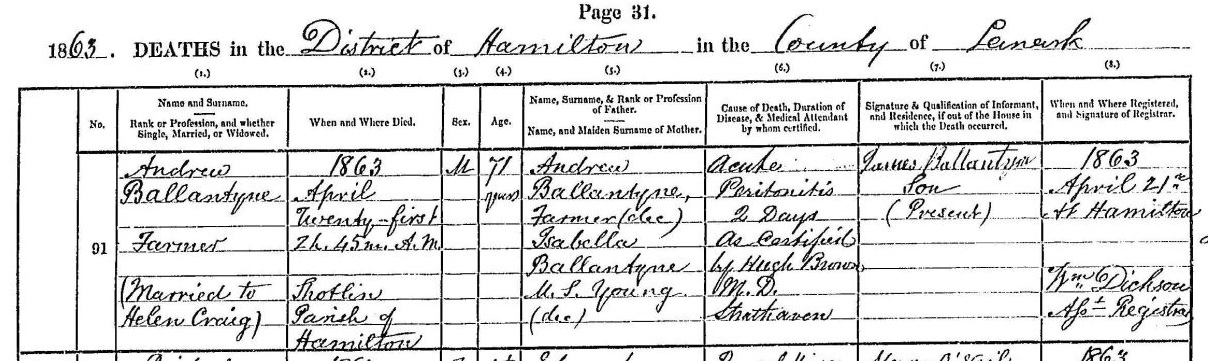 Page 31.
1863. DEATHS in the District of Hamilton in the County of Lanark
(1.) (2.) (3.) (4.) (5.) (6.) (7.) (8.)
No.
Name and Surname.
Rank or Profession, and whether
Single, Married, or Widowed.
When and Where Died.
Sex.
Age.
Name, Surname, & Rank or Profession
of Father.
Name, and Maiden Surname of Mother.
Cause of Death, Duration of
Disease, & Medical Attendant
by whom certified.
Signature & Qualification of Informant,
and Residence, if out of the House in
which the Death occurred.
When and Where Registered,
and Signature of Registrar.
91
Andrew
Ballantyne
Farmer
(Married to
Helen Craig)
1863
April
Twenty-first
2h. 45m. A.M.
Parish of
Hamilton
M
71
years
Andrew
Ballantyne,
Farmer (dec)
Isabella
Ballantyne
M.S. Young
(dec)
Acute
Peritonitis
2 Days
As Certified
by Hugh Brown
M.D.
Strathaven
James Ballantyne
Son
(Present)
1863
April 21st
At Hamilton
Wm C Dickson
Asst Registrar
1863